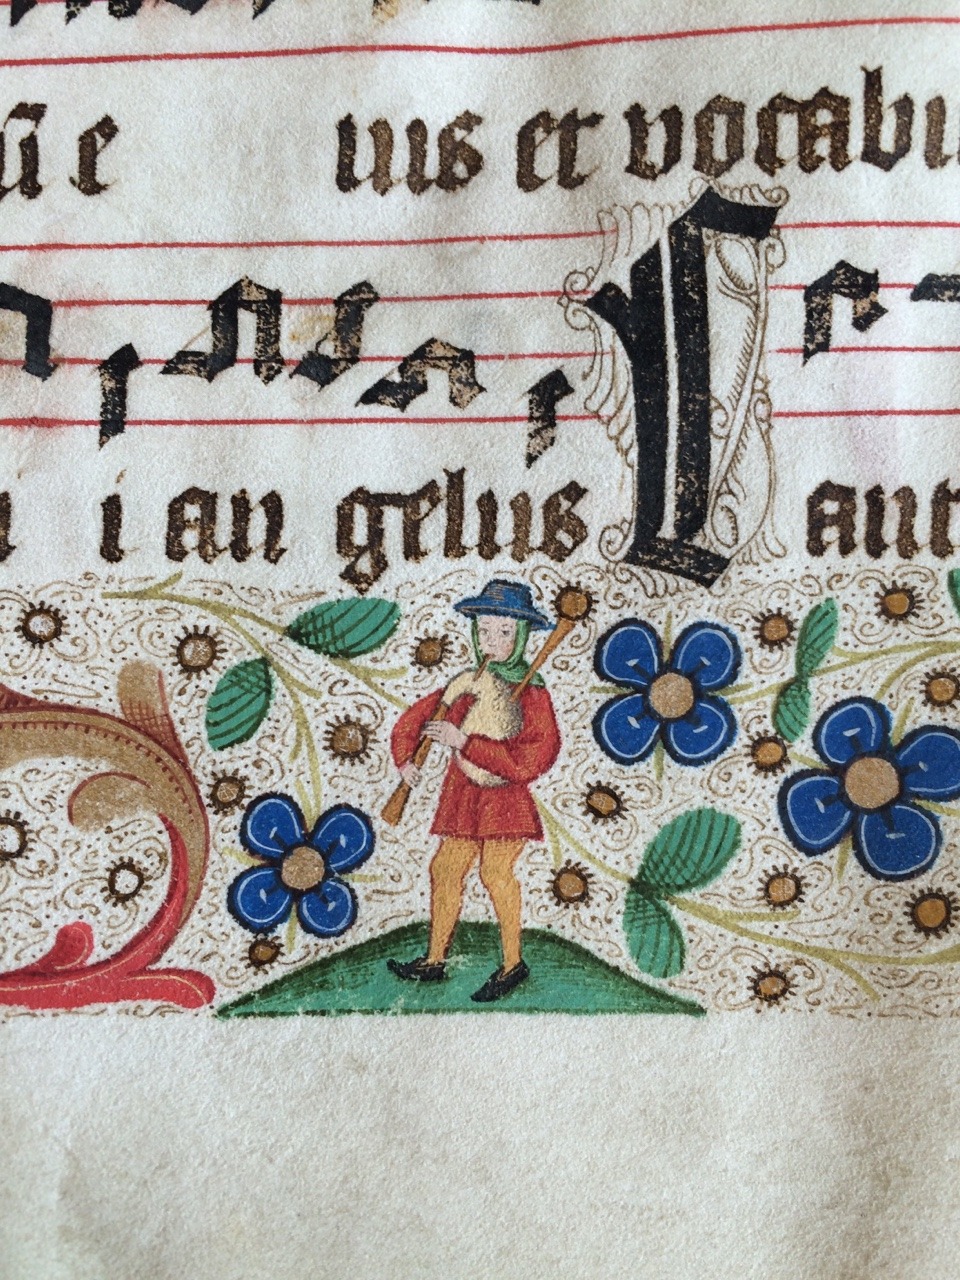 ū e uus et vocabu
i an gelus Cant